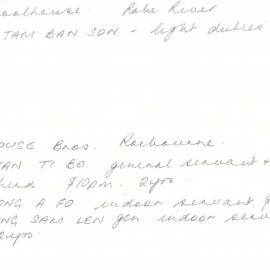 oolhouse. Robe River
TAM BAN SON - light duties
OUSE Bros. Roebourne.
TAN TI BO. general servant +
head $10pm. 2yrs.
ONG A FO. indoor servant $
NG SAM LEN gen. indoor serv
2yrs.